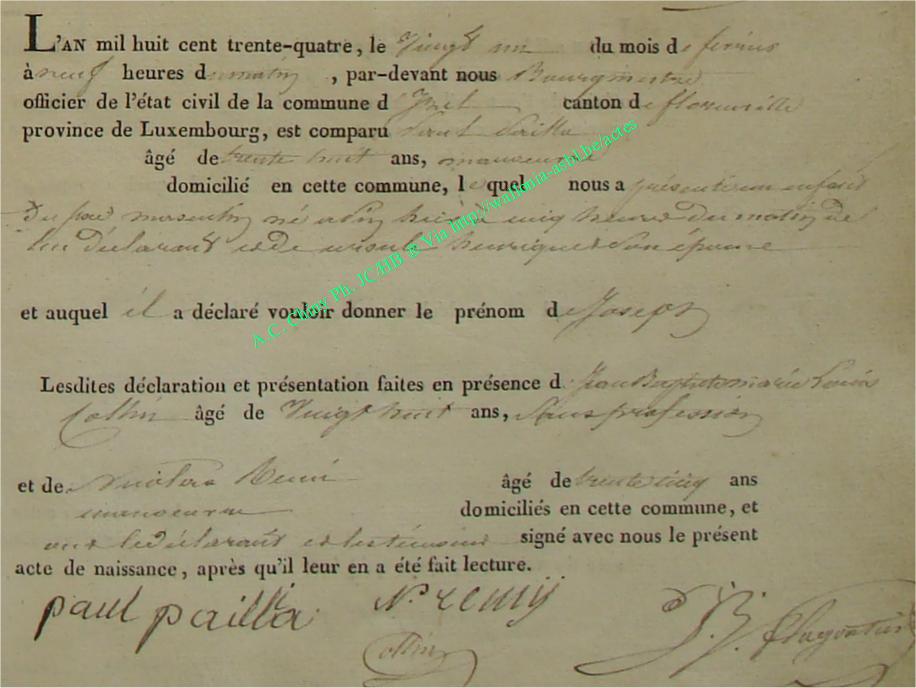 L'AN mil huit cent trente-quatre, le Vingt un du mois de fevrier
à neuf heures du matin, par-devant nous Bourgmestre
officier de l'état civil de la commune d' canton de florenville
province de Luxembourg, est comparu Paul Pailla
âgé de trente huit ans, manoeuvre
domicilié en cette commune, lequel nous a présenté un enfant
Du masculin né à cinq heures du matin de
lui Déclarant et de ursule henriquet Son épouse
et auquel il a déclaré vouloir donner le prénom de Joseph
Lesdites déclaration et présentation faites en présence de Jean Baptiste marie Louis
Collin âgé de Vingt huit ans, Sans profession
et de nicolas Remi âgé de trente cinq ans
manoeuvre domiciliés en cette commune, et
ont le déclarant et les témoins signé avec nous le présent
acte de naissance, après qu'il leur en a été fait lecture.
paul pailla N. remy
Collin
A.C. Chiny Ph. JC.HB @ Via http://wallonia-asbl.be/actes